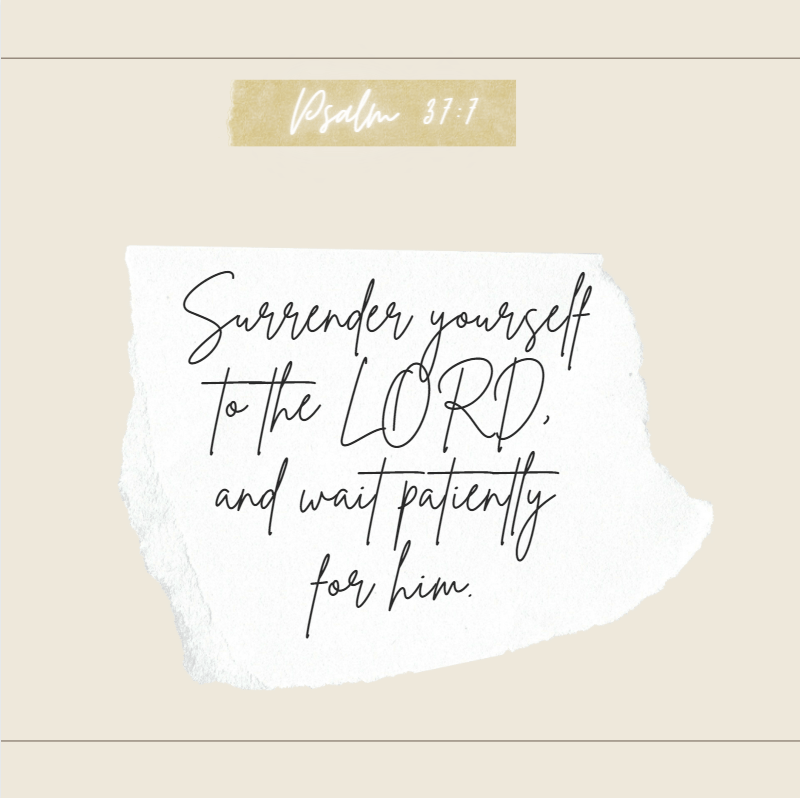 Psalm 37:7
Surrender yourself
to the LORD,
and wait patiently
for him.